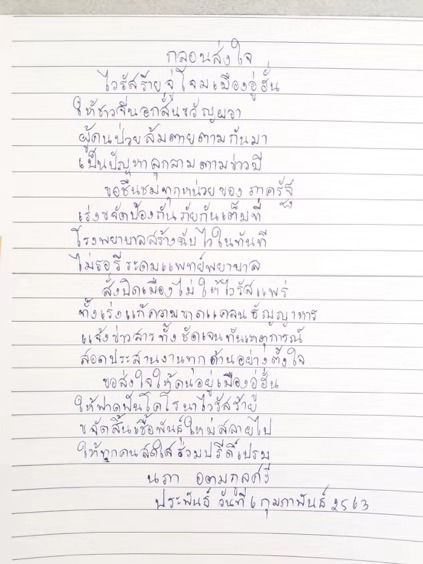 กลอนส่งใจ
ไวรัสร้ายจู่โจมเมืองอู่ฮั่น
ให้ชาวจีนอกสั่นขวัญผวา
ผู้คนป่วยล้มตายตามกันมา
เป็นปัญหาลุกลามตามข่าวมี
ขอชื่นชมทุกหน่วยของภาครัฐ
เร่งขจัดป้องกันภัยกันเต็มที่
โรงพยาบาลสร้างฉับไวในทันที
ไม่รอรีระดมแพทย์พยาบาล
สั่งปิดเมืองไม่ให้ไวรัสแพร่
ทั้งเร่งแก้ความขาดแคลนธัญญาหาร
แจ้งข่าวสารทั้งชัดเจนทันเหตุการณ์
สอดประสานงานทุกด้านอย่างตั้งใจ
ขอส่งใจให้คนอยู่เมืองอู่ฮั่น
ให้ฟาดฟันโคโรนาไวรัสร้าย
ขจัดสิ้นเชื้อพันธุ์ใหม่สลายไป
ให้ทุกคนสดใสร่วมปรีดิ์เปรม
นภา
ประพันธ์ วันที่ 6 กุมภาพันธ์ 2563